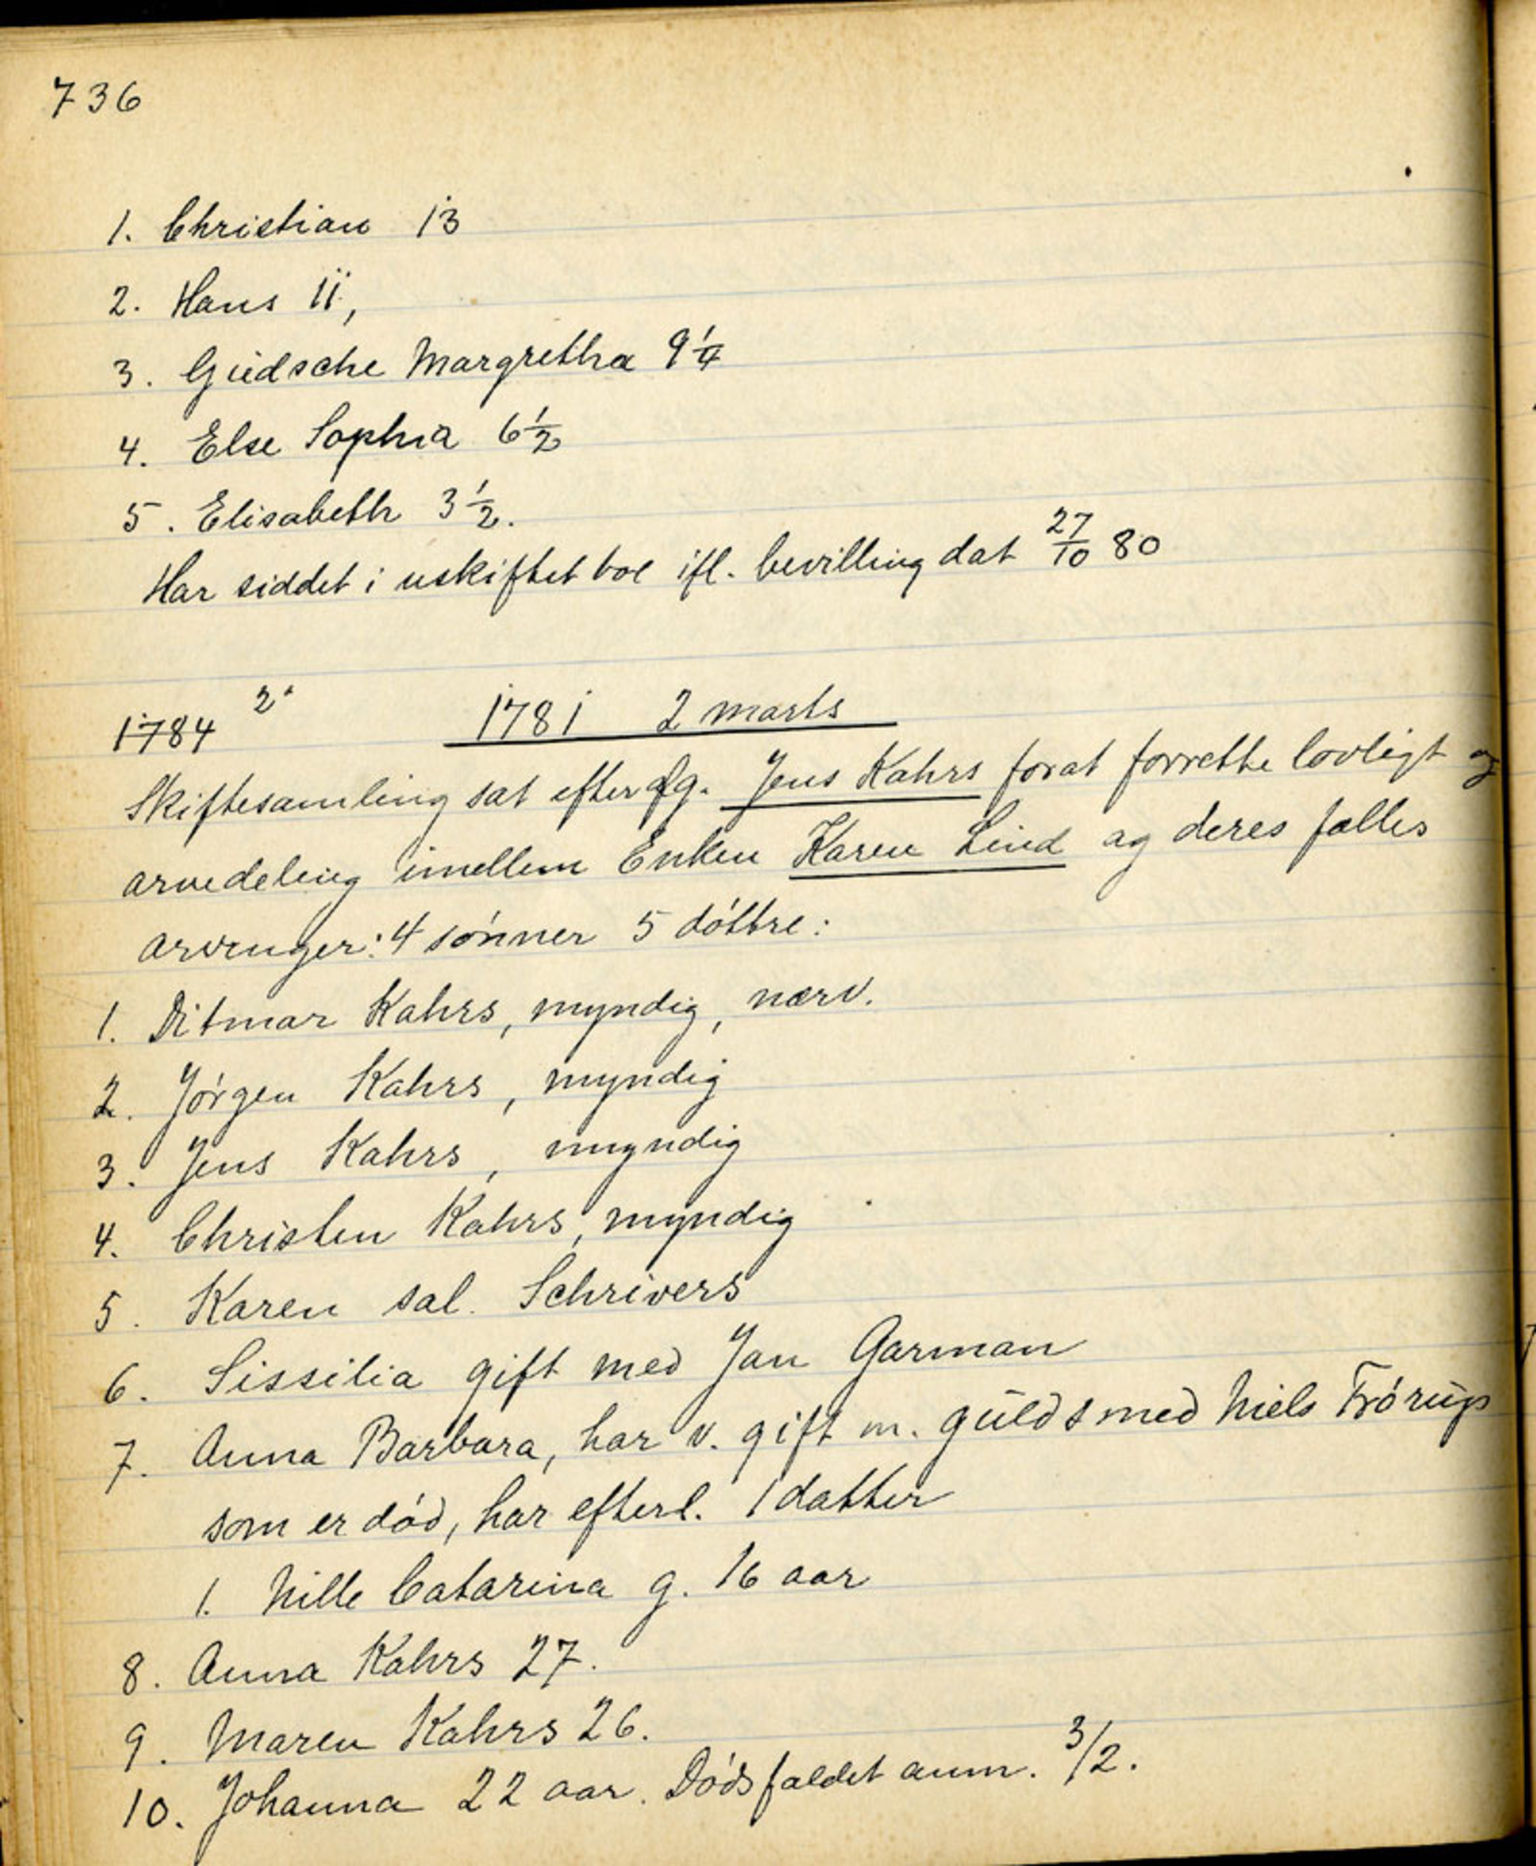 736
1. Christian 13
2. Hans 11,
3. Giidsche Margretha 9 1/4
4. Else Sophia 6 1/2
5. Elisabeth 3 1/2.
Har siddet i uskiftet boe ifl. bevilling dat 27/10 80
1784 2. 1781 2 marts
Skiftesamling sat efter afg. Jens Kahrs forat forrette lovligt og
arvedeling imellem Enken Karen Lind og deres fælles
arvinger: 4 sønner 5 døttre:
1. Ditmar Kahrs, myndig, nærv.
2. Jørgen Kahrs, myndig
3. Jens Kahrs, myndig
4. Christen Kahrs, myndig
5. Karen sal. Schrivers
6. Sissilia gift med Jan Garman
7. Anna Barbara, har v. gift m. guldsmed Niels Frörup
som er død, har efterl. 1 datter
1. Nille Catarina g. 16 aar
8. Anna Kahrs 27.
9. Maren Kahrs 26.
10. Johanna 22 aar. Dødsfaldet anm. 3/2.